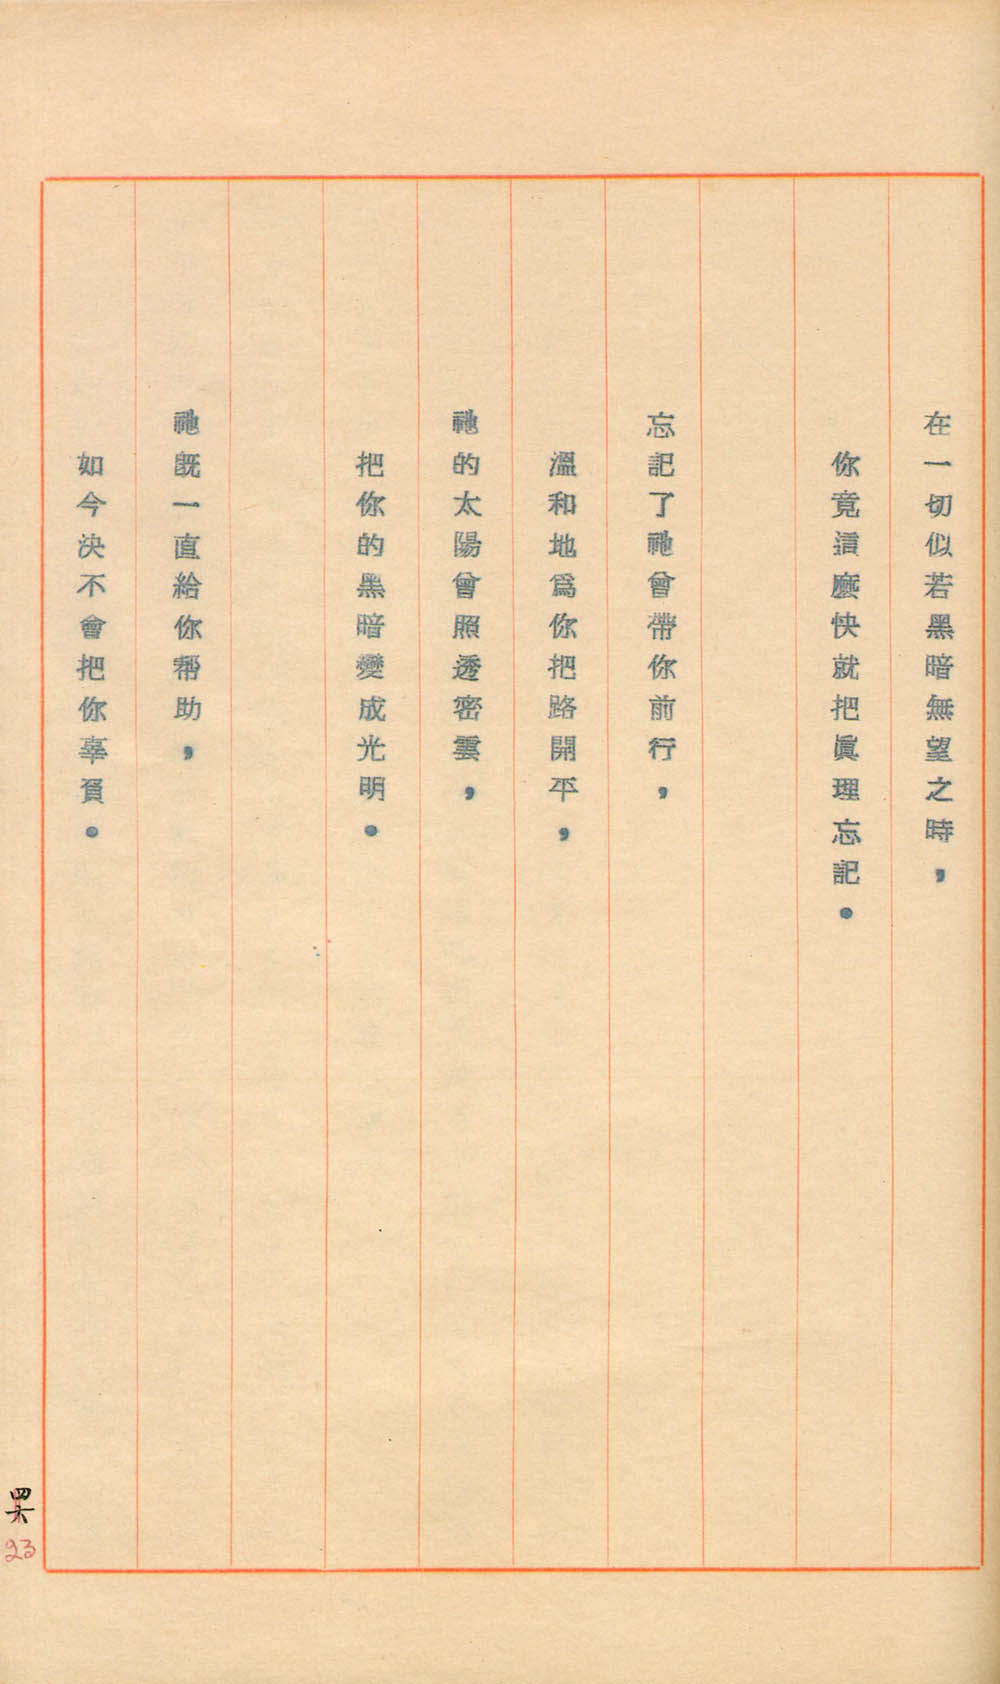 在一切似若黑暗無望之時，
你竟這麼快就把眞理忘記。
忘記了祂曾帶你前行，
溫和地爲你把路開平，
祂的太陽曾照透密雲，
把你的黑暗變成光明。
祂既一直給你帮助，
如今決不會把你辜負。
四六
23